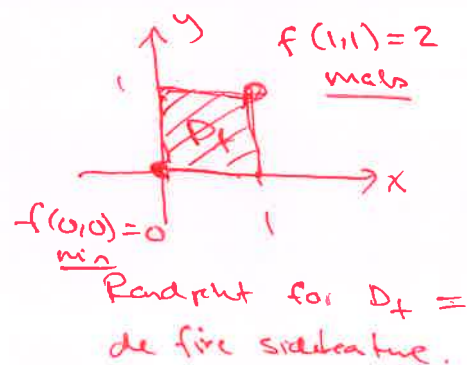 y
f(1,1) = 2
maks
1
D_f
x
f(0,0) = 0
1
min
Randpkt for D_f =
de fire sidekantene.